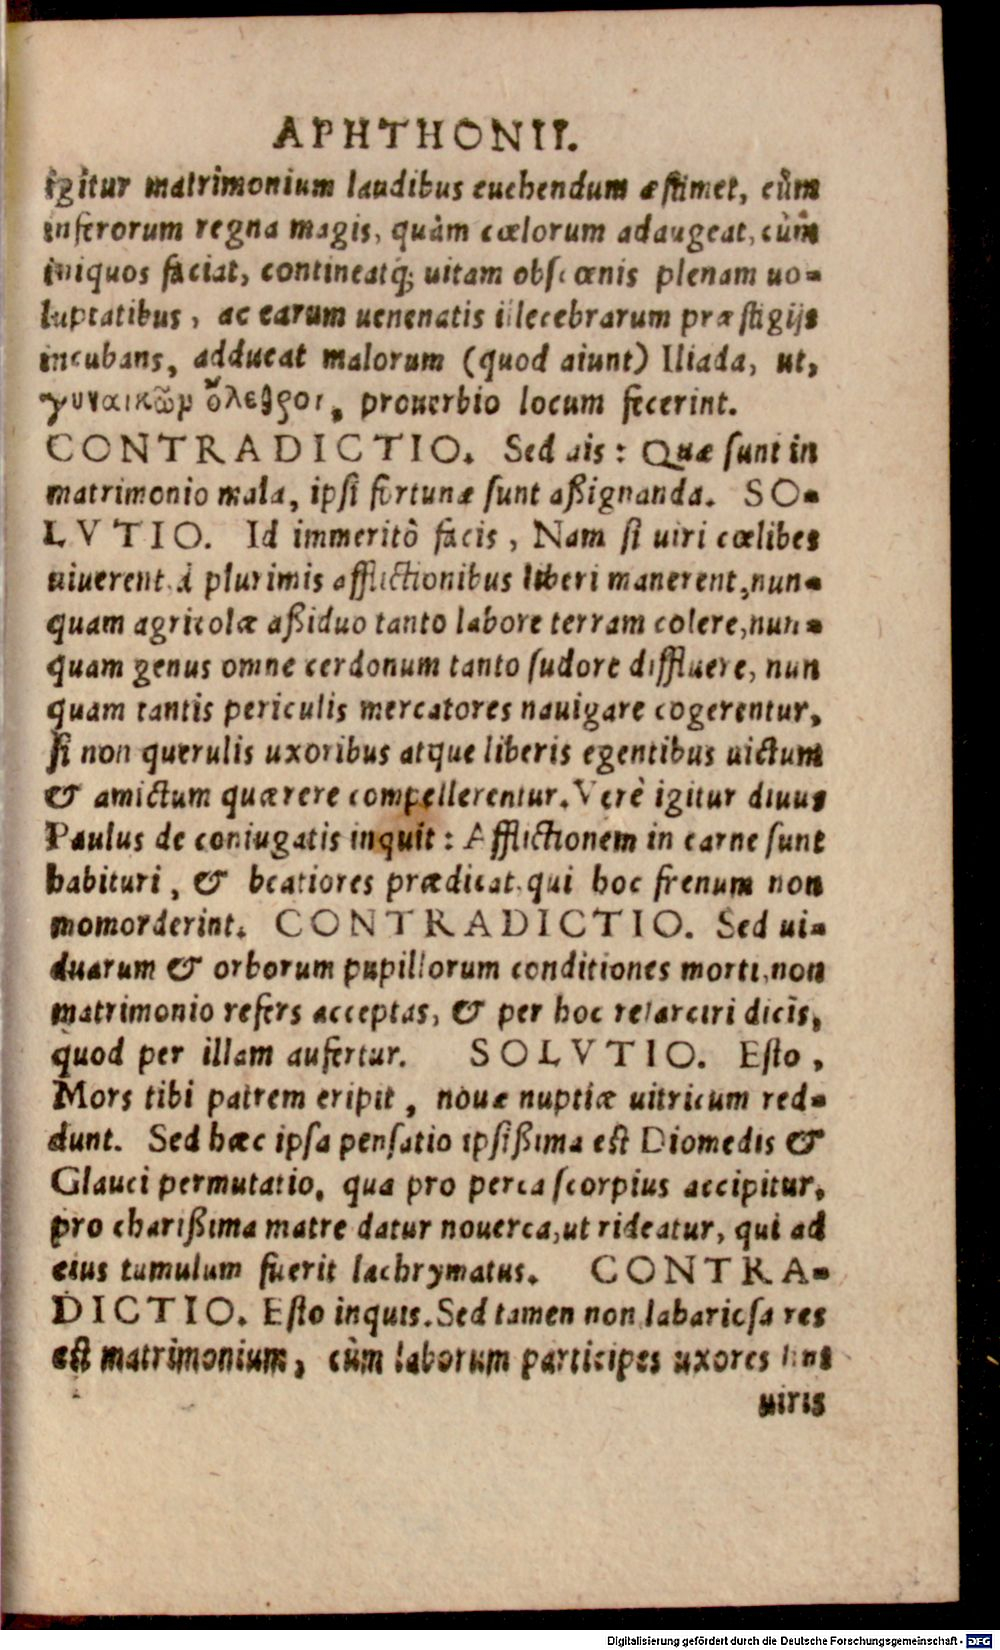 APHTHONII.
igitur matrimonium laudibus euehendum æstimet, cùm
inferorum regna magis, quàm cœlorum adaugeat, cùm
iniquos faciat, contineatq; uitam obscœnis plenam uo-
luptatibus, ac earum uenenatis illecebrarum præstigijs
incubans, adducat malorum (quod aiunt) Iliada, ut,
γυναικῶν ὄλεθροι, prouerbio locum fecerint.
CONTRADICTIO. Sed ais: Quæ sunt in
matrimonio mala, ipsi fortunæ sunt aßignanda. SO-
LVTIO. Id immeritò facis, Nam si uiri cœlibes
uiuerent à plurimis afflictionibus liberi manerent, nun-
quam agricolæ aßiduo tanto labore terram colere, nun-
quam genus omne cerdonum tanto sudore diffluere, nun
quam tantis periculis mercatores nauigare cogerentur,
si non querulis uxoribus atque liberis egentibus uictum
& amictum quærere compellerentur. Verè igitur diuus
Paulus de coniugatis inquit: Afflictionem in carne sunt
habituri, & beatiores prædicat, qui hoc frenum non
momorderint. CONTRADICTIO. Sed ui-
duarum & orborum pupillorum conditiones morti, non
matrimonio refers acceptas, & per hoc resarciri dicis,
quod per illam aufertur. SOLVTIO. Esto,
Mors tibi patrem eripit, nouæ nuptiæ uitricum red-
dunt. Sed hæc ipsa pensatio ipsißima est Diomedis &
Glauci permutatio, qua pro perca scorpius accipitur,
pro charißima matre datur nouerca, ut rideatur, qui ad
eius tumulum fuerit lachrymatus. CONTRA-
DICTIO. Esto inquis. Sed tamen non labariosa res
est matrimonium, cùm laborum participes uxores sint
uiris
Digitalisierung gefördert durch die Deutsche Forschungsgemeinschaft - DFG